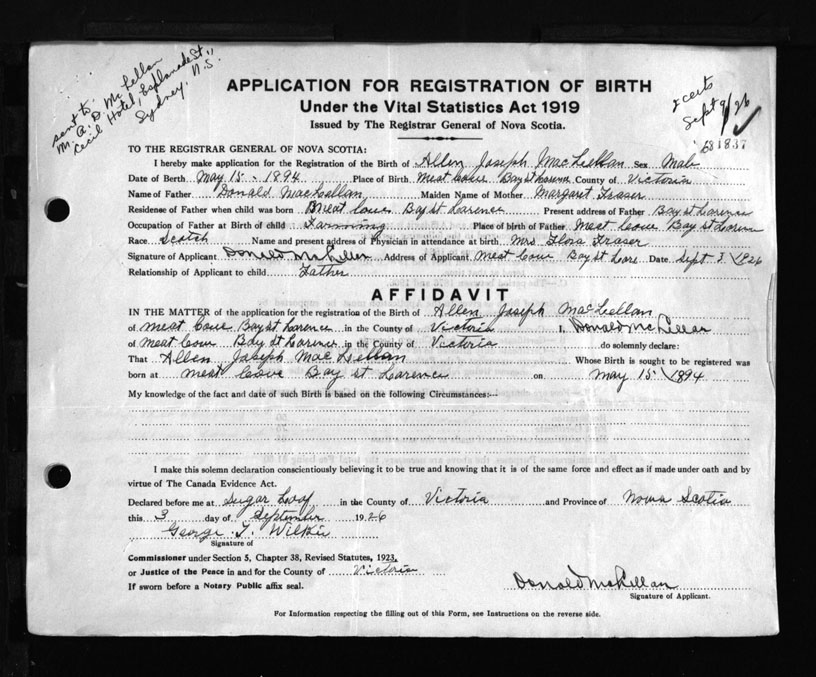 sent to
Mr. A. D. McLellan
Cecil Hotel, Esplanade St.,
Sydney, N.S.
2 certs
Sept 9/26
681837
APPLICATION FOR REGISTRATION OF BIRTH
Under the Vital Statistics Act 1919
Issued by The Registrar General of Nova Scotia.
TO THE REGISTRAR GENERAL OF NOVA SCOTIA:
I hereby make application for the Registration of the Birth of Allen Joseph MacLellan Sex Male
Date of Birth May 15 - 1894 Place of Birth Meat Cove Bay st Larence County of Victoria
Name of Father Donald MacLellan Maiden Name of Mother Margaret Fraser
Residense of Father when child was born Meat Cove Bay st Larence Present address of Father Bay st Larence
Occupation of Father at Birth of child Farming Place of birth of Father Meat Cove Bay st Larence
Race Scotch Name and present address of Physician in attendance at birth Mrs Flora Fraser
Signature of Applicant Donald McLellan Address of Applicant Meat Cove Bay st Lare Date Sept 3 1926
Relationship of Applicant to child Father
AFFIDAVIT
IN THE MATTER of the application for the registration of the Birth of Allen Joseph MacLellan
of Meat Cove Bay st Larence in the County of Victoria I, Donald McLellan
of Meat Cove Bay st Larence in the County of Victoria do solemnly declare:
That Allen Joseph MacLellan Whose Birth is sought to be registered was
born at Meat Cove Bay st Larence on May 15 1894
My knowledge of the fact and date of such Birth is based on the following Circumstances:—
I make this solemn declaration conscientiously believing it to be true and knowing that it is of the same force and effect as if made under oath and by
virtue of The Canada Evidence Act.
Declared before me at Sugar Loaf in the County of Victoria and Province of Nova Scotia
this 3 day of September 1926
George T. Wilkie
Signature of
Commissioner under Section 5, Chapter 38, Revised Statutes, 1923,
or Justice of the Peace in and for the County of Victoria
If sworn before a Notary Public affix seal.
Donald McLellan
Signature of Applicant.
For Information respecting the filling out of this Form, see Instructions on the reverse side.